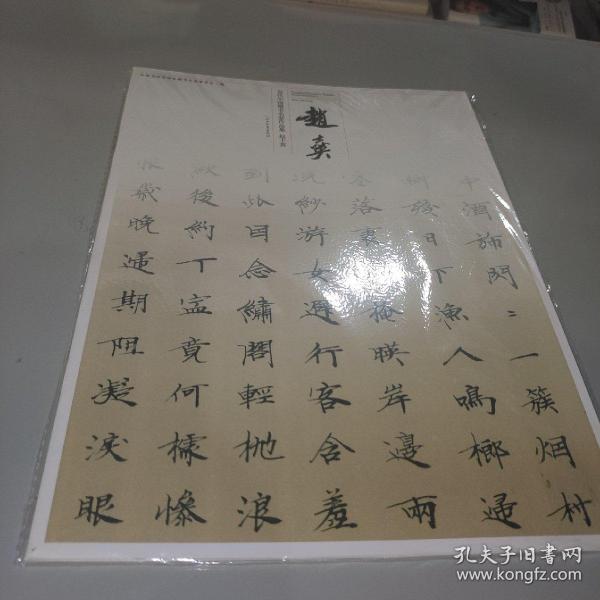 中酒旆閃〻一簇烟村
樹殘日下漁人鳴榔歸
落衰掩映岸邊兩
浣紗游女避行客含羞
到此因念繡閣輕抛浪
歎後約丁寍竟何據慘
恨歲晚歸期阻凝淚眼
孔夫子旧书网
www.kongfz.com